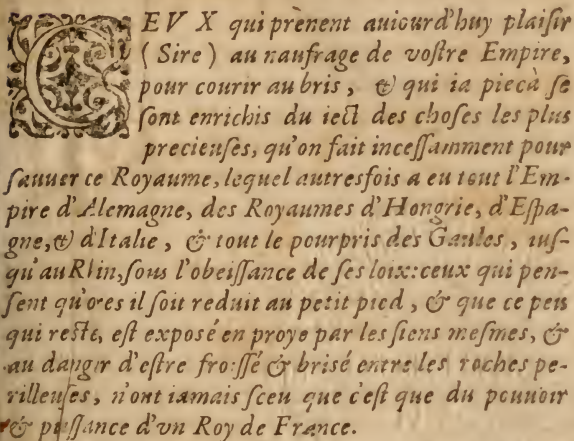 CEVX qui prènent auiourd'huy plaiſir
(Sire) au naufrage de voſtre Empire,
pour courir au bris, & qui ia piecà ſe
ſont enrichis du iect des choſes les plus
precieuſes, qu'on fait inceſſamment pour
ſauuer ce Royaume, lequel autresfois a eu tout l'Em-
pire d'Alemagne, des Royaumes d'Hongrie, d'Eſpa-
gne, & d'Italie, & tout le pourpris des Gaules, iuſ-
qu'au Rhin, ſous l'obeiſſance de ſes loix: ceux qui pen-
ſent qu'ores il ſoit reduit au petit pied, & que ce peu
qui reſte, eſt expoſé en proye par les ſiens meſmes, &
au danger d'eſtre froiſſé & briſé entre les roches pe-
rilleuſes, n'ont iamais ſceu que c'eſt que du pouuoir
& puiſſance d'vn Roy de France.